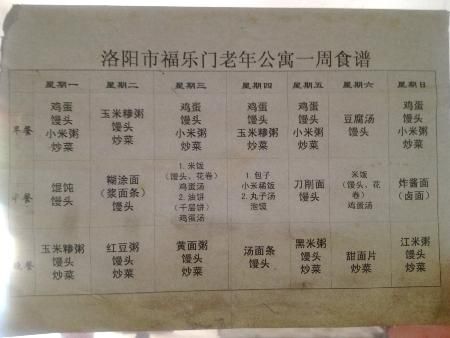 洛阳市福乐门老年公寓一周食谱
星期一 星期二 星期三 星期四 星期五 星期六 星期日
早餐
鸡蛋
馒头
小米粥
炒菜
玉米糁粥
馒头
炒菜
鸡蛋
馒头
小米粥
炒菜
鸡蛋
馒头
玉米糁粥
炒菜
鸡蛋
馒头
小米粥
炒菜
豆腐汤
馒头
鸡蛋
馒头
小米粥
炒菜
中餐
馄饨
馒头
糊涂面
（浆面条）
馒头
1. 米饭
（馒头、花卷）
鸡蛋汤
2. 油饼
（千层饼）
鸡蛋汤
1. 包子
小米稀饭
2. 丸子汤
泡馍
刀削面
馒头
米饭
（馒头、花
卷）
鸡蛋汤
炸酱面
（卤面）
晚餐
玉米糁粥
馒头
炒菜
红豆粥
馒头
炒菜
黄面粥
馒头
炒菜
汤面条
馒头
黑米粥
馒头
炒菜
甜面片
炒菜
江米粥
馒头
炒菜